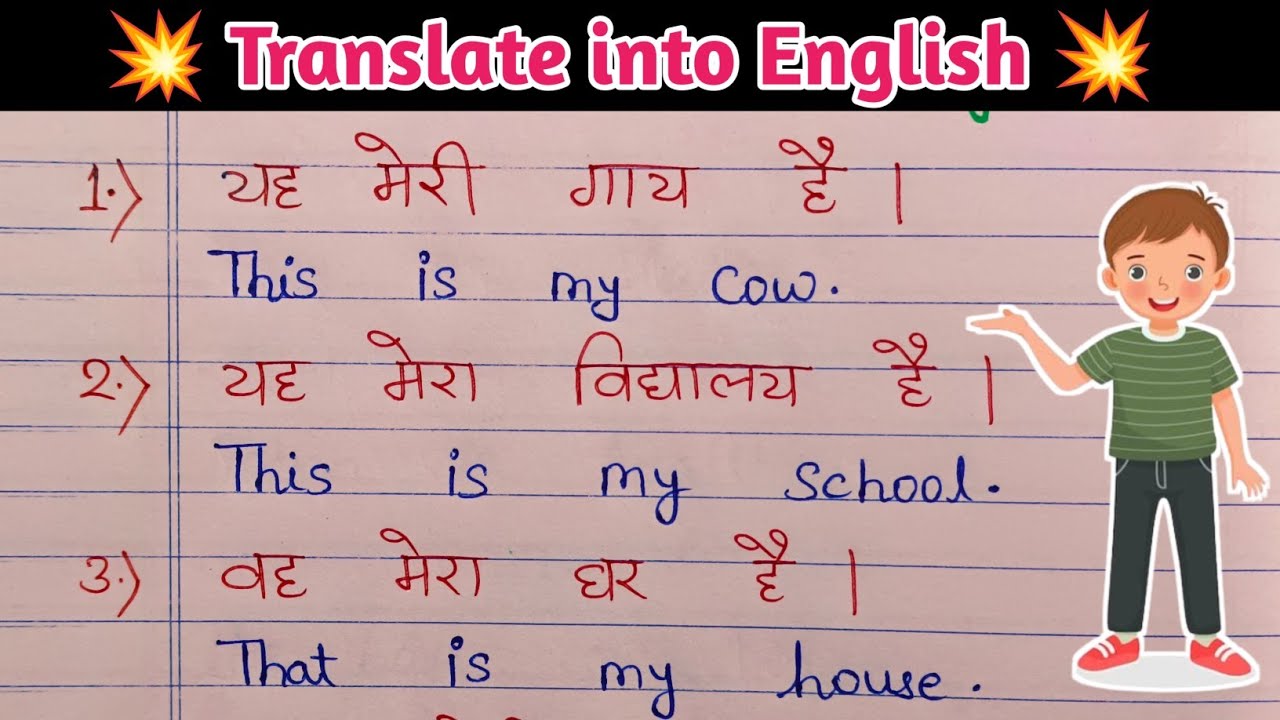 💥 Translate into English 💥
1.) यह मेरी गाय है ।
This is my cow.
2.) यह मेरा विद्यालय है ।
This is my school.
3.) वह मेरा घर है ।
That is my house.